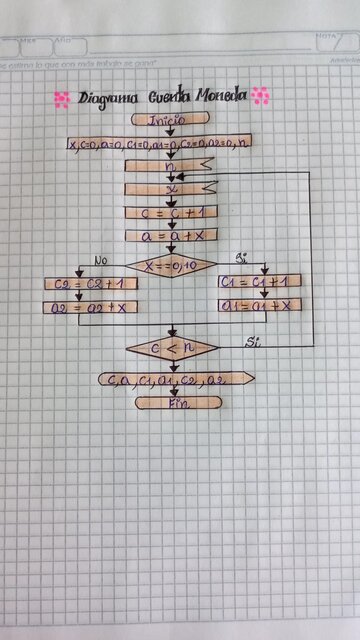 MES
AÑO
NOTA
se estima lo que con más trabajo se gana"
Diagrama Cuenta Moneda
Inicio
x, c=0, a=0, c1=0, a1=0, c2=0, a2=0, n
n
x
c = c + 1
a = a + x
No
x==0,10
Si
c2 = c2 + 1
c1 = c1 + 1
a2 = a2 + x
a1 = a1 + x
c < n
Si
c, a, c1, a1, c2, a2
Fin